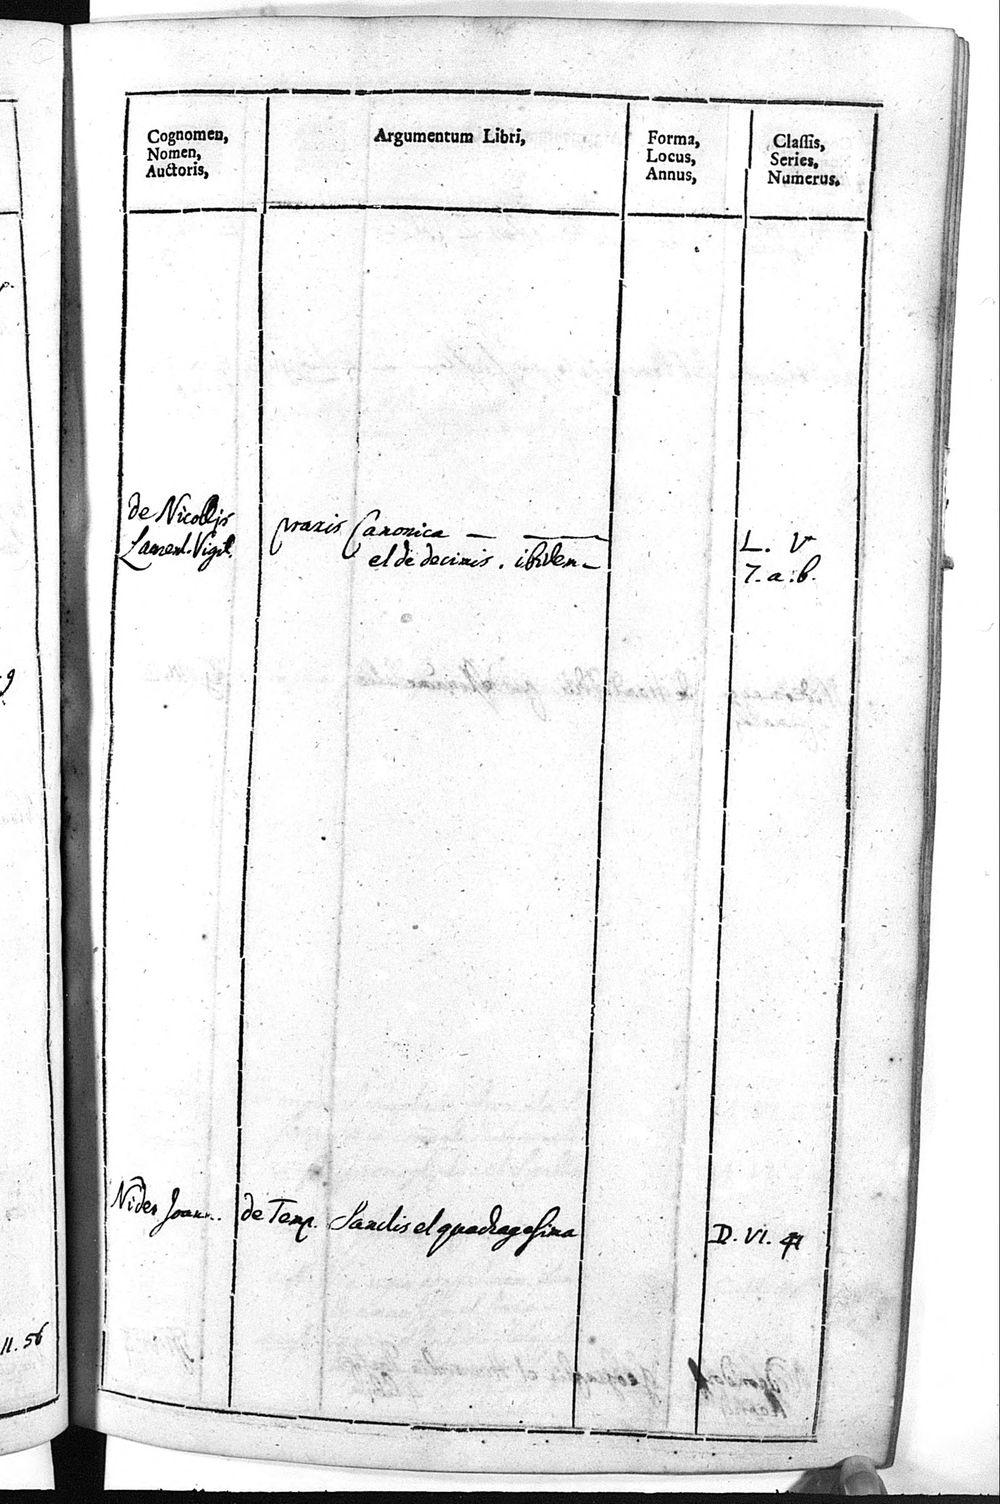 Cognomen,
Nomen,
Auctoris,
Argumentum Libri,
Forma,
Locus,
Annus,
Classis,
Series,
Numerus.
de Nicollis
Laurent. Vigil.
praxis Canonica — —
et de decimis. ibidem —
L. V
7. a. b.
Nider Joan..
de Temp. Sanctis et quadragesima
D. VI. 41
11. 56